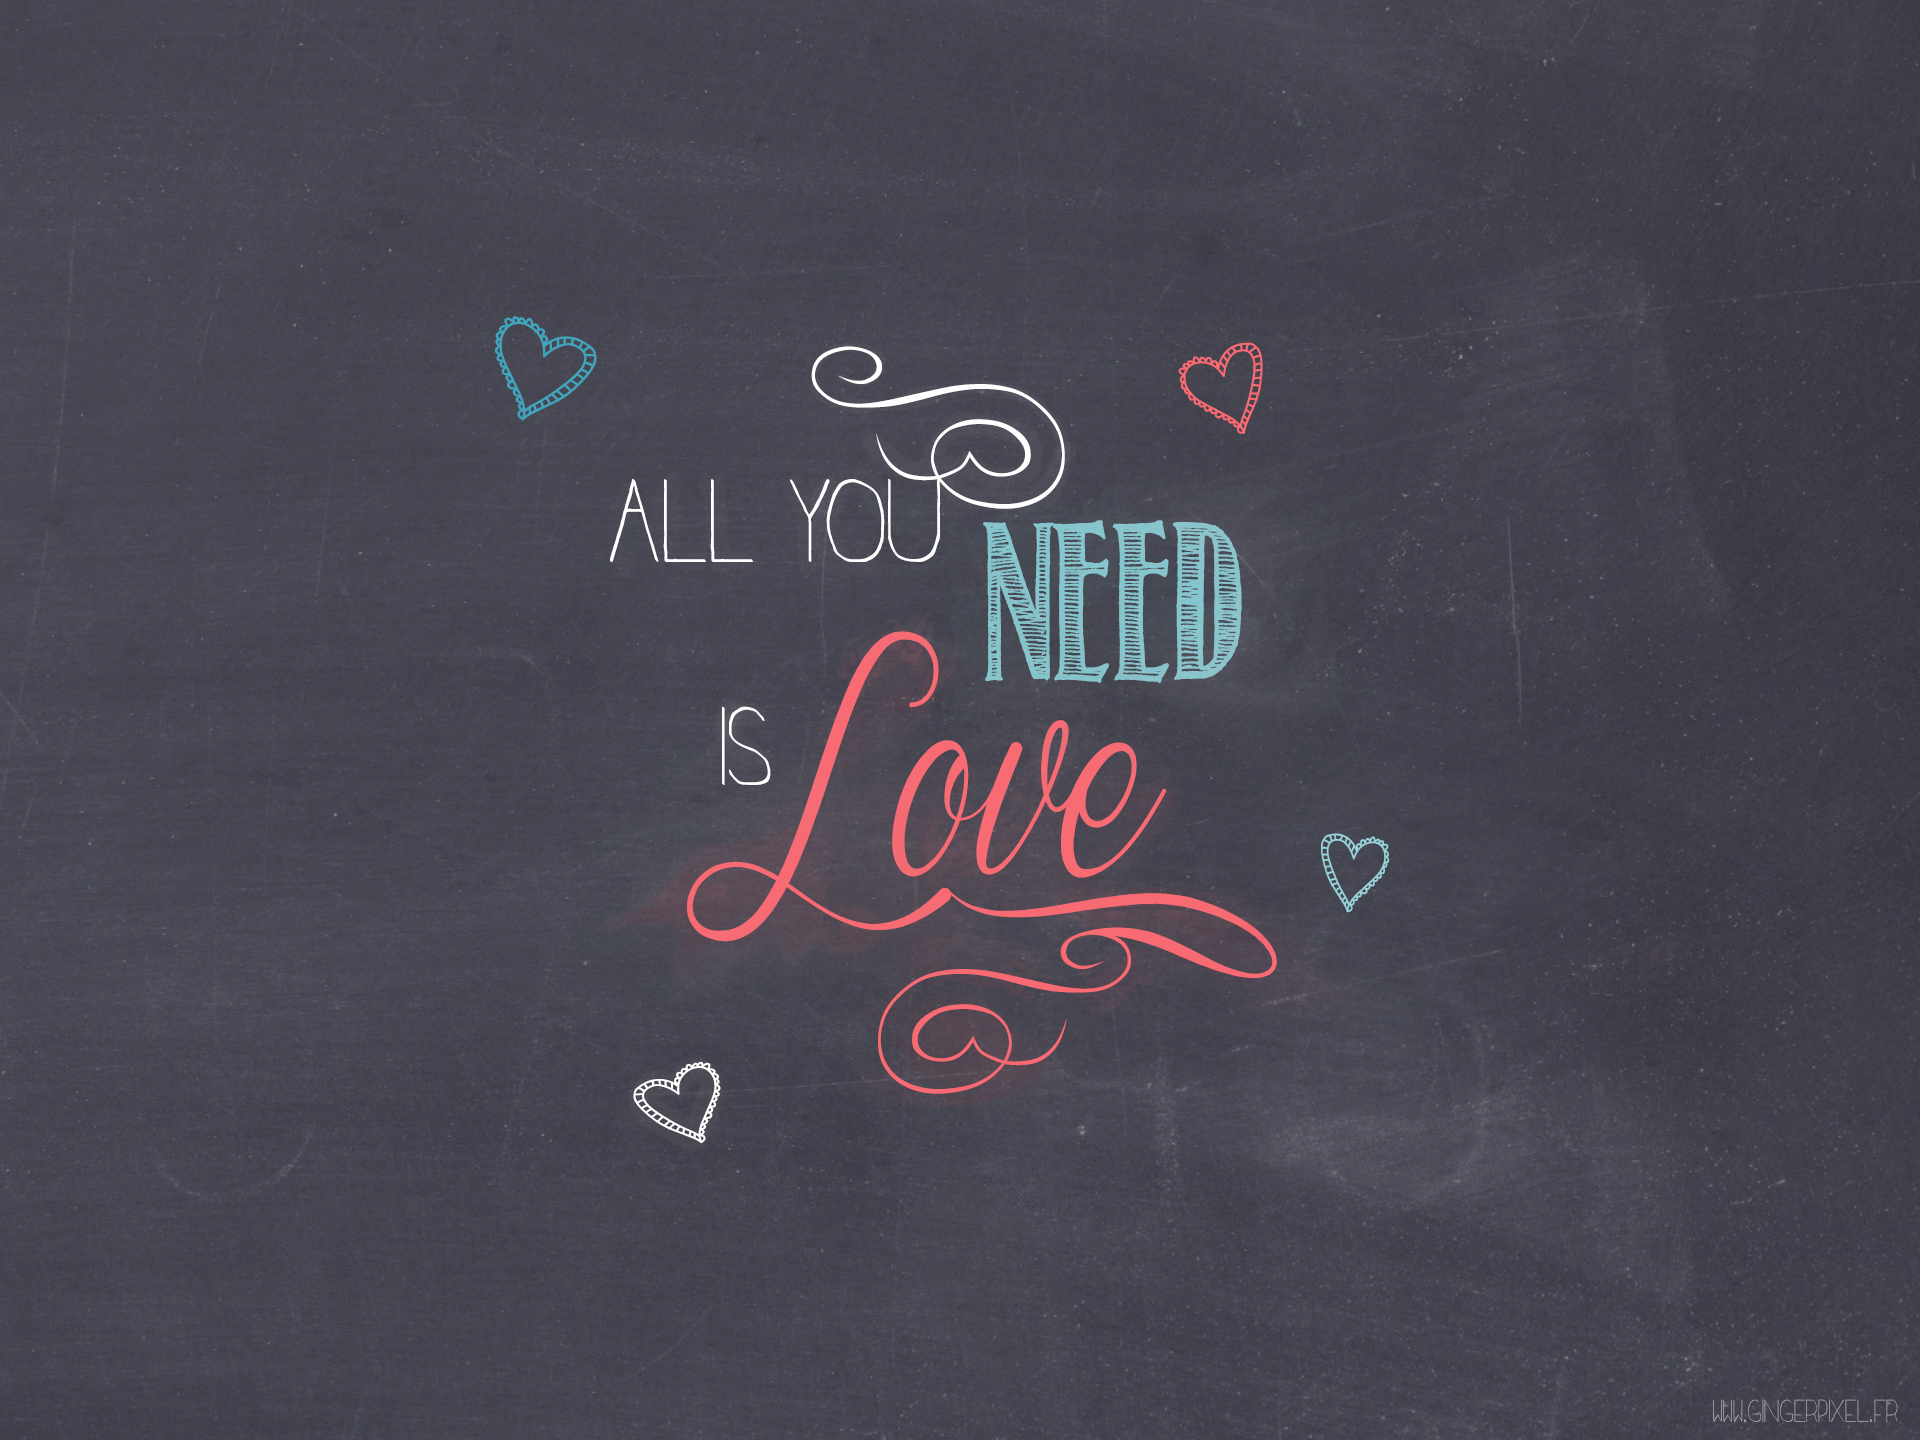 ALL YOU
NEED
IS Love
WWW.GINGERPIXEL.FR